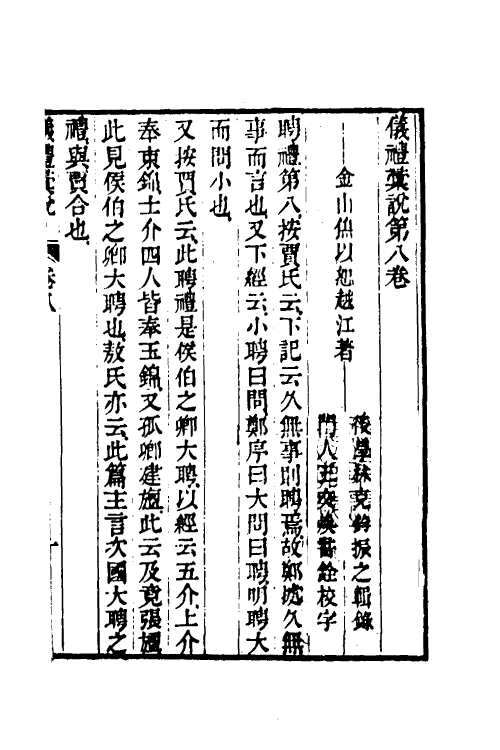 儀禮彙說第八卷
金山焦以恕越江著
後學林克鏘振之輯錄
門人王奕煥書銓校字
聘禮第八按賈氏云下記云久無事則聘焉故鄭據久無
事而言也又下經云小聘曰問鄭序曰大問曰聘明聘大
而問小也
又按賈氏云此聘禮是侯伯之卿大聘以經云五介上介
奉束錦士介四人皆奉玉錦又孤卿建旜此云及竟張旜
此見侯伯之卿大聘也敖氏亦云此篇主言次國大聘之
禮與賈合也
儀禮彙說
卷八
一